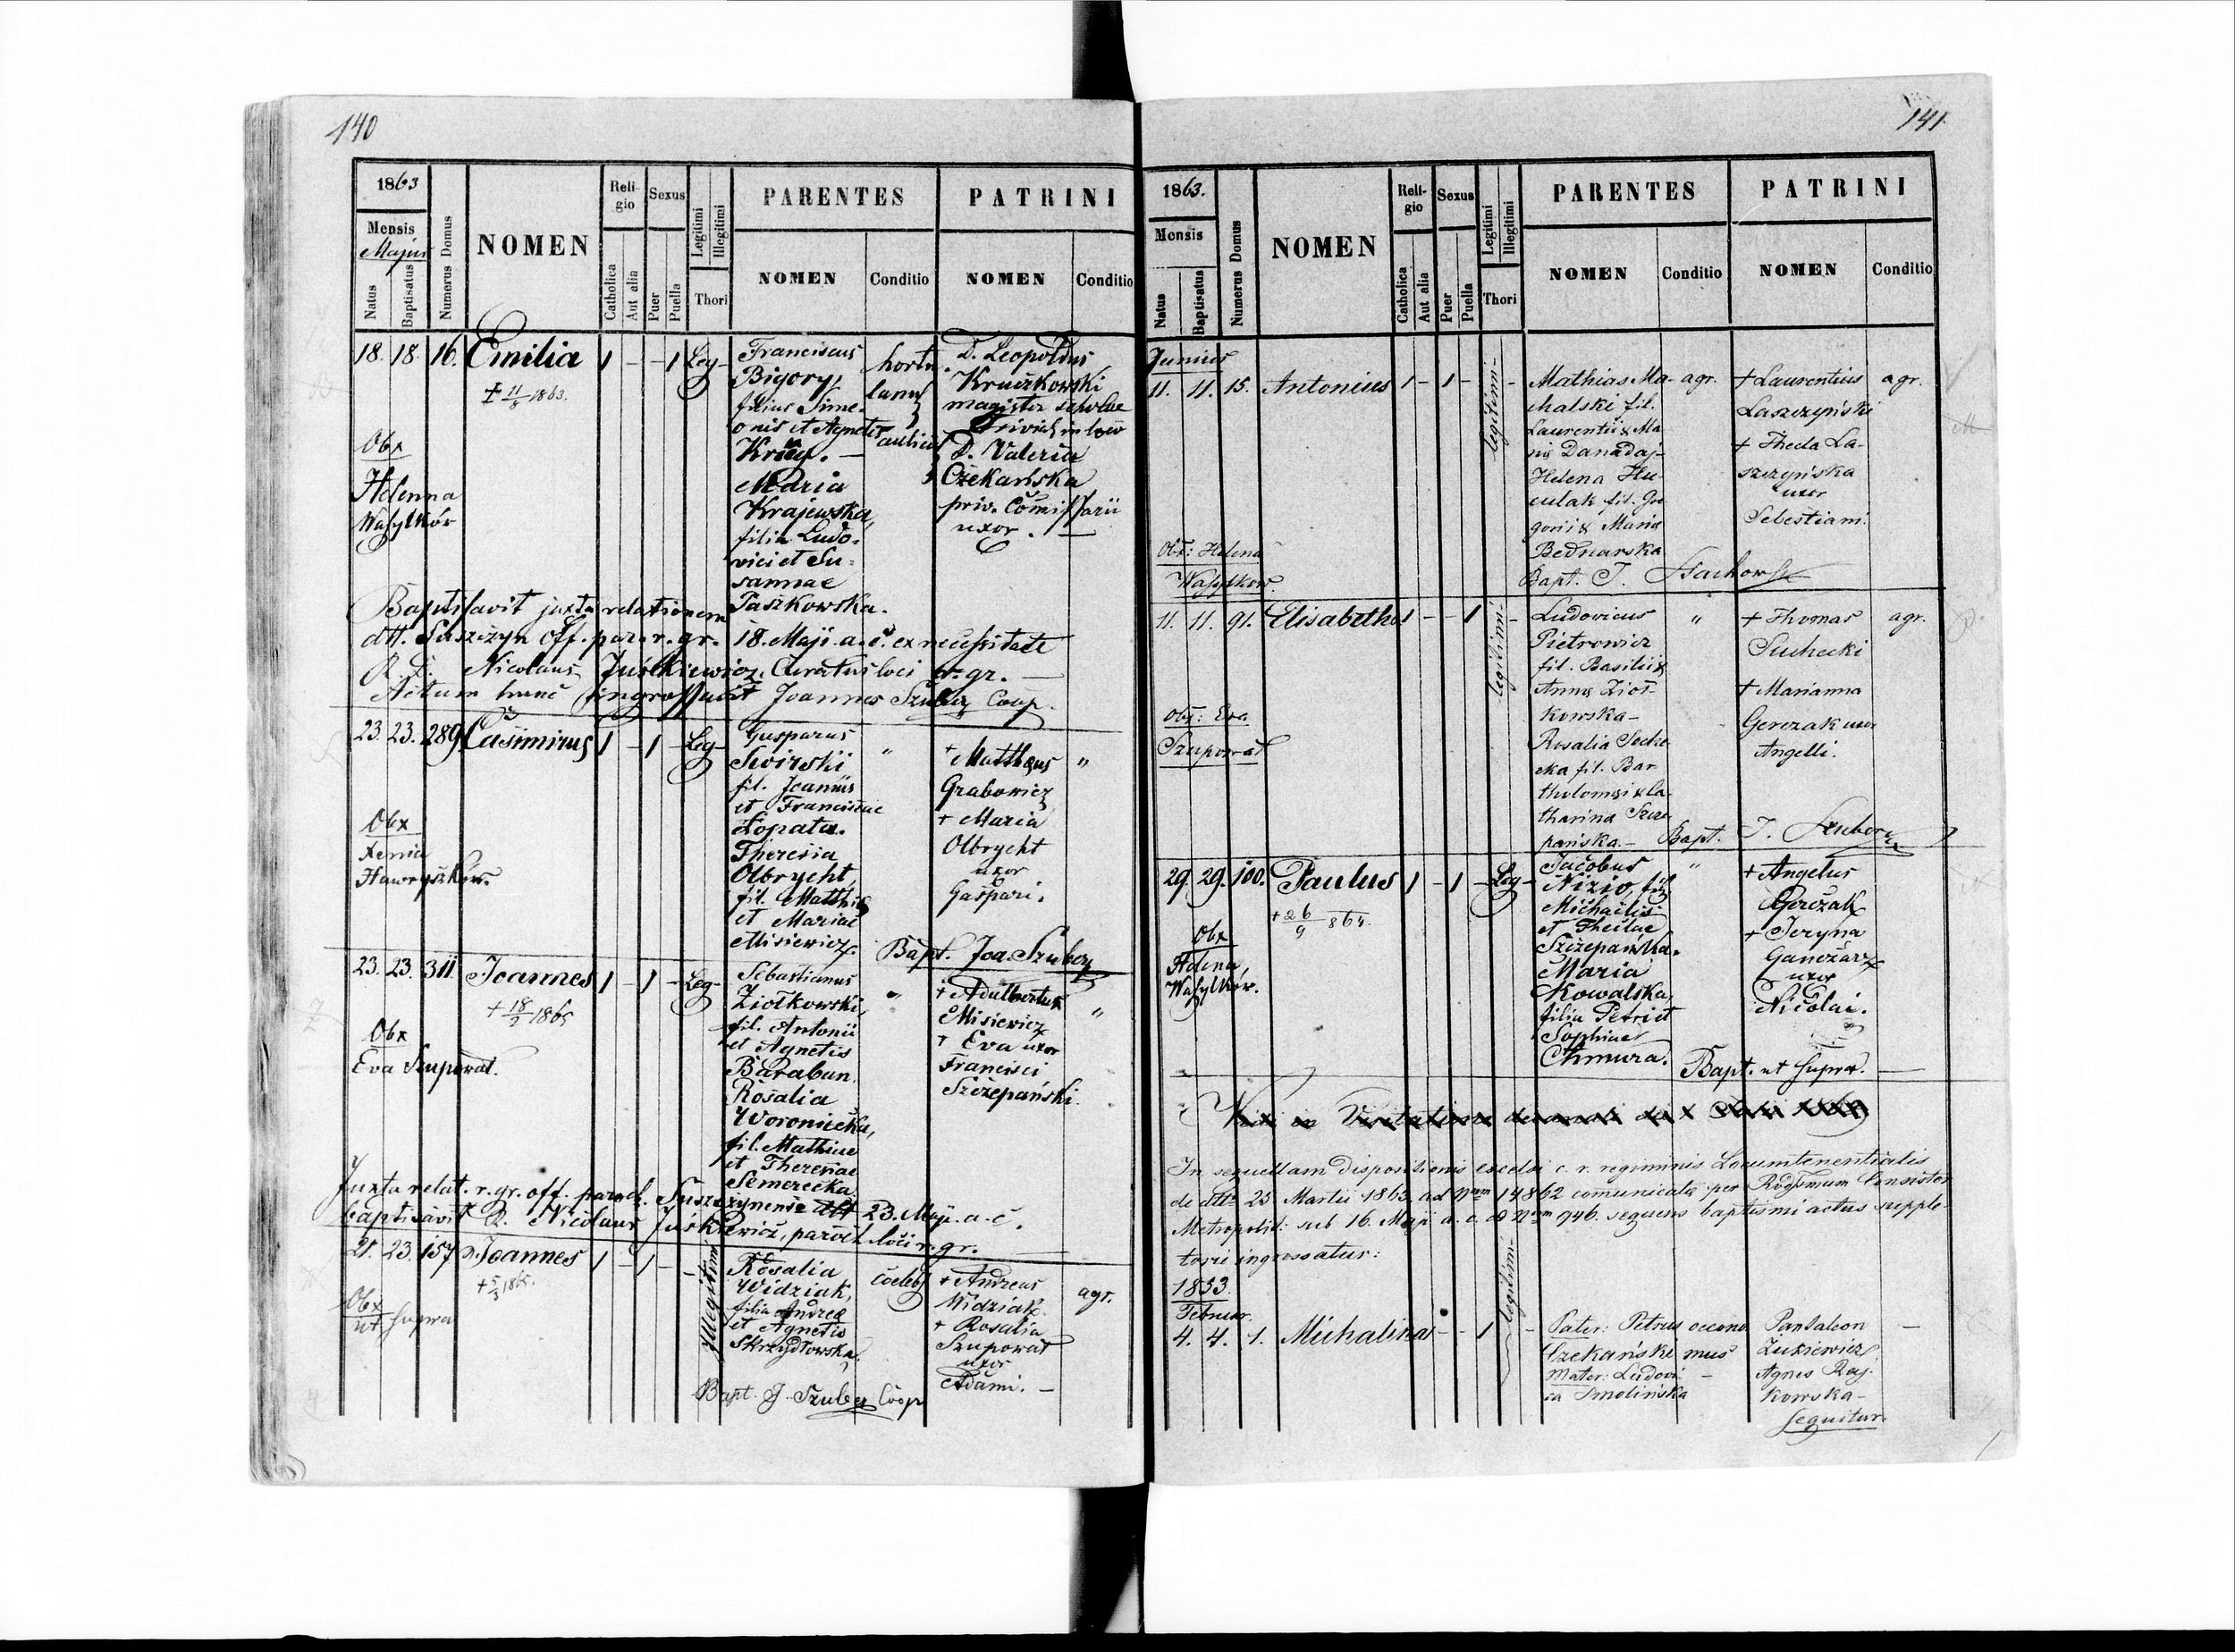 140
1863
Mensis
Majus
Natus
Baptisatus
Numerus Domus
NOMEN
Reli-
gio
Catholica
Aut alia
Sexus
Puer
Puella
Legitimi
Illegitimi
Thori
PARENTES
NOMEN
Conditio
PATRINI
NOMEN
Conditio
18. 18. 16. Emilia 1 - - 1 Leg-
+ 11/8 1863.
Obx
Helenna
Wasylków
Franciscus
Bigory,
filius Sime-
onis et Agnetis
Maria
Krajewska,
filia Ludo-
vici et Su-
sannae
Paszkowska.
hortu-
lanus
D. Leopoldus
Kruczkowski
magister scholae
D. Valeria
Czekańska
uxor. —
Baptisavit juxta relationem
dtt. Suszczyn off. par. r. gr. 18. Maji a. c. ex necessitate
Nicolaus Juśkiewicz, Curatus loci r. gr. —
Actum hunc ingrossavit Joannes Szuber Coop.
23. 23. 289 Casimirus 1 - 1 - Leg-
Obx
Xenia
Hawryszków.
Gasparus
Swirski
fil. Joannis
et Franciscae
Łopata.
Theresia
Olbrycht
fil. Matthiae
et Mariae
Misiewicz.
"
+ Matthaeus
Grabowicz
+ Maria
Olbrycht
uxor
Gaspari.
"
Bapt. Joa. Szuber
23. 23. 311. Joannes 1 - 1 - Leg-
+ 18/2 1865
Obx
Eva Szuporat.
Sebastianus
Ziółkowski,
fil. Antonii
et Agnetis
Baraban.
Rosalia
Woroniecka,
fil. Mathiae
et Theresiae
Semerecka
"
+ Adalbertus
Misiewicz
+ Eva uxor
Francisci
Szczepański.
"
Juxta relat. r. gr. off. paroch. Suszczynense 23. Maji a. c.
baptisavit R. Nicolaus Juśkiewicz, paroch. loci r. gr. —
21. 23. 157 Joannes 1 - 1 - - Illegitimi
+ 5/3 1865.
Obx
ut supra
Rosalia
Widziak,
filia Andreae
et Agnetis
Skrzydłowska.
coelebs
+ Andreas
Widziak.
+ Rosalia
Szuporat
uxor
Adami. —
agr.
Bapt. J. Szuber Coop
141.
1863.
Mensis
Natus
Baptisatus
Numerus Domus
NOMEN
Reli-
gio
Catholica
Aut alia
Sexus
Puer
Puella
Legitimi
Illegitimi
Thori
PARENTES
NOMEN
Conditio
PATRINI
NOMEN
Conditio
Junius
11. 11. 15. Antonius 1 - 1 - legitimi -
Obx: Helena
Wasylkow.
Mathias Ma-
chalski fil.
Laurentii & Ma
Helena Hu-
culak fil. Gre
gorii & Maria
Bednarska.
agr.
+ Laurentius
Laszczyński
+ Thecla La-
szczyńska
uxor
Sebestiani.
agr.
Bapt. J.
11. 11. 91. Elisabetha 1 - - 1 legitimi -
Obx: Eva
Szuporat
Ludovicus
Pietrowicz
fil. Basilii &
Anna Zioł-
kowska -
Rosalia Suche
cka fil. Bar
tholomaei & Ca
tharina Szcze
pańska. -
"
+ Thomas
Suchecki
+ Marianna
Gerczak uxor
Angelli.
agr.
Bapt. J. Szuber
29. 29. 100. Paulus 1 - 1 - Leg-
+ 26/9 864.
Obx
Helena
Wasylków.
Jacobus
Nizio, fil.
Michaelis
et Theclae
Szczepańska.
Maria
Kowalska,
filia Petri et
Sophiae
Chmura.
"
+ Angelus
Gerczak
+ Jeryna
Ganczarz
uxor
Nicolai.
Bapt. ut supra. —
In sequellam dispositionis excelsi c. r. regiminis Locumtenentialis
de dtto 25 Martii 1863 ad Nrum 14862 comunicatae per Rdgsimum Consistor
Metropolit: sub 16. Maji a. c. ad Nrum 946. sequens baptismi actus supple-
torii ingrossatur:
1833.
Februar.
4. 4. 1. Michalina - - 1 legitimi -
Pater: Petrus
Czekański
Mater: Ludovi
ca Smolińska
oecono
mus
-
Pantaleon
Zukiewicz
Agnes Raj-
kowska -
—
Sequitur.